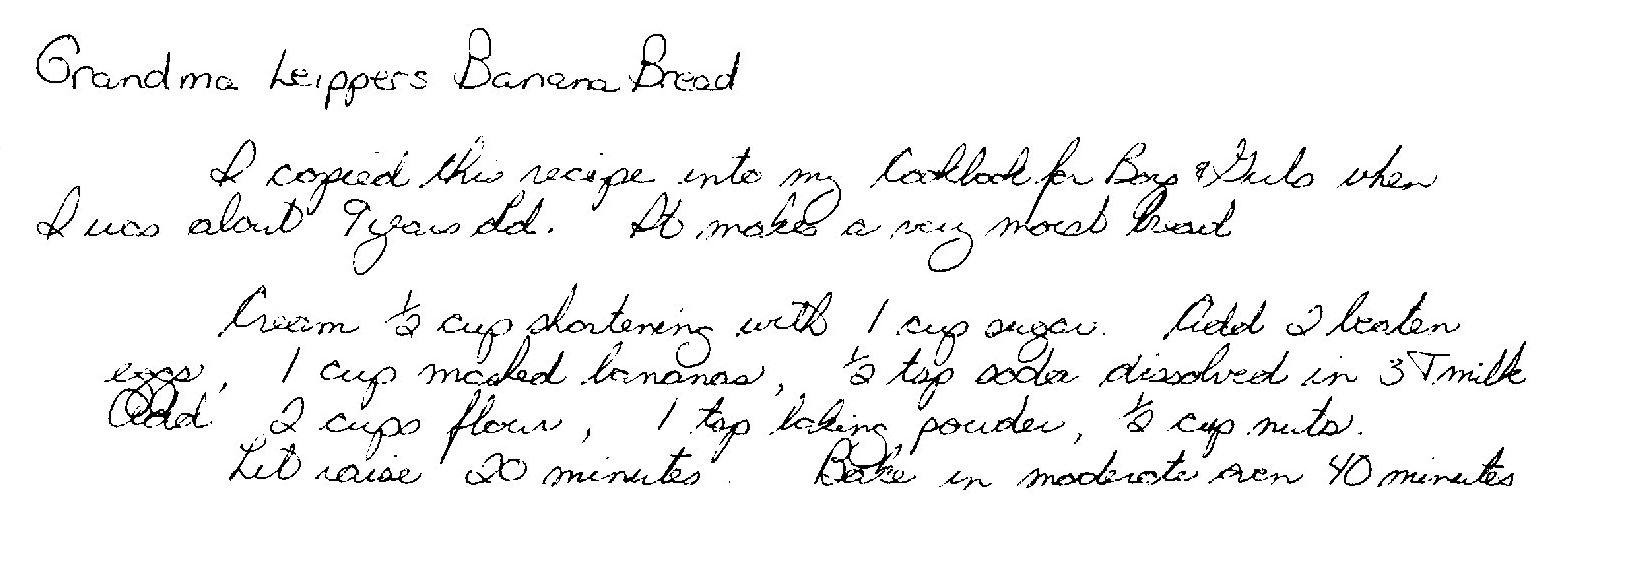 Grandma Leippers Banana Bread
I copied this recipe into my Cookbook for Boys & Girls when
I was about 9 years old. It makes a very moist bread
Cream ½ cup shortening with 1 cup sugar. Add 2 beaten
eggs, 1 cup mashed bananas, ½ tsp soda dissolved in 3 T milk
Add 2 cups flour, 1 tsp baking powder, ½ cup nuts.
Let raise 20 minutes. Bake in moderate oven 40 minutes